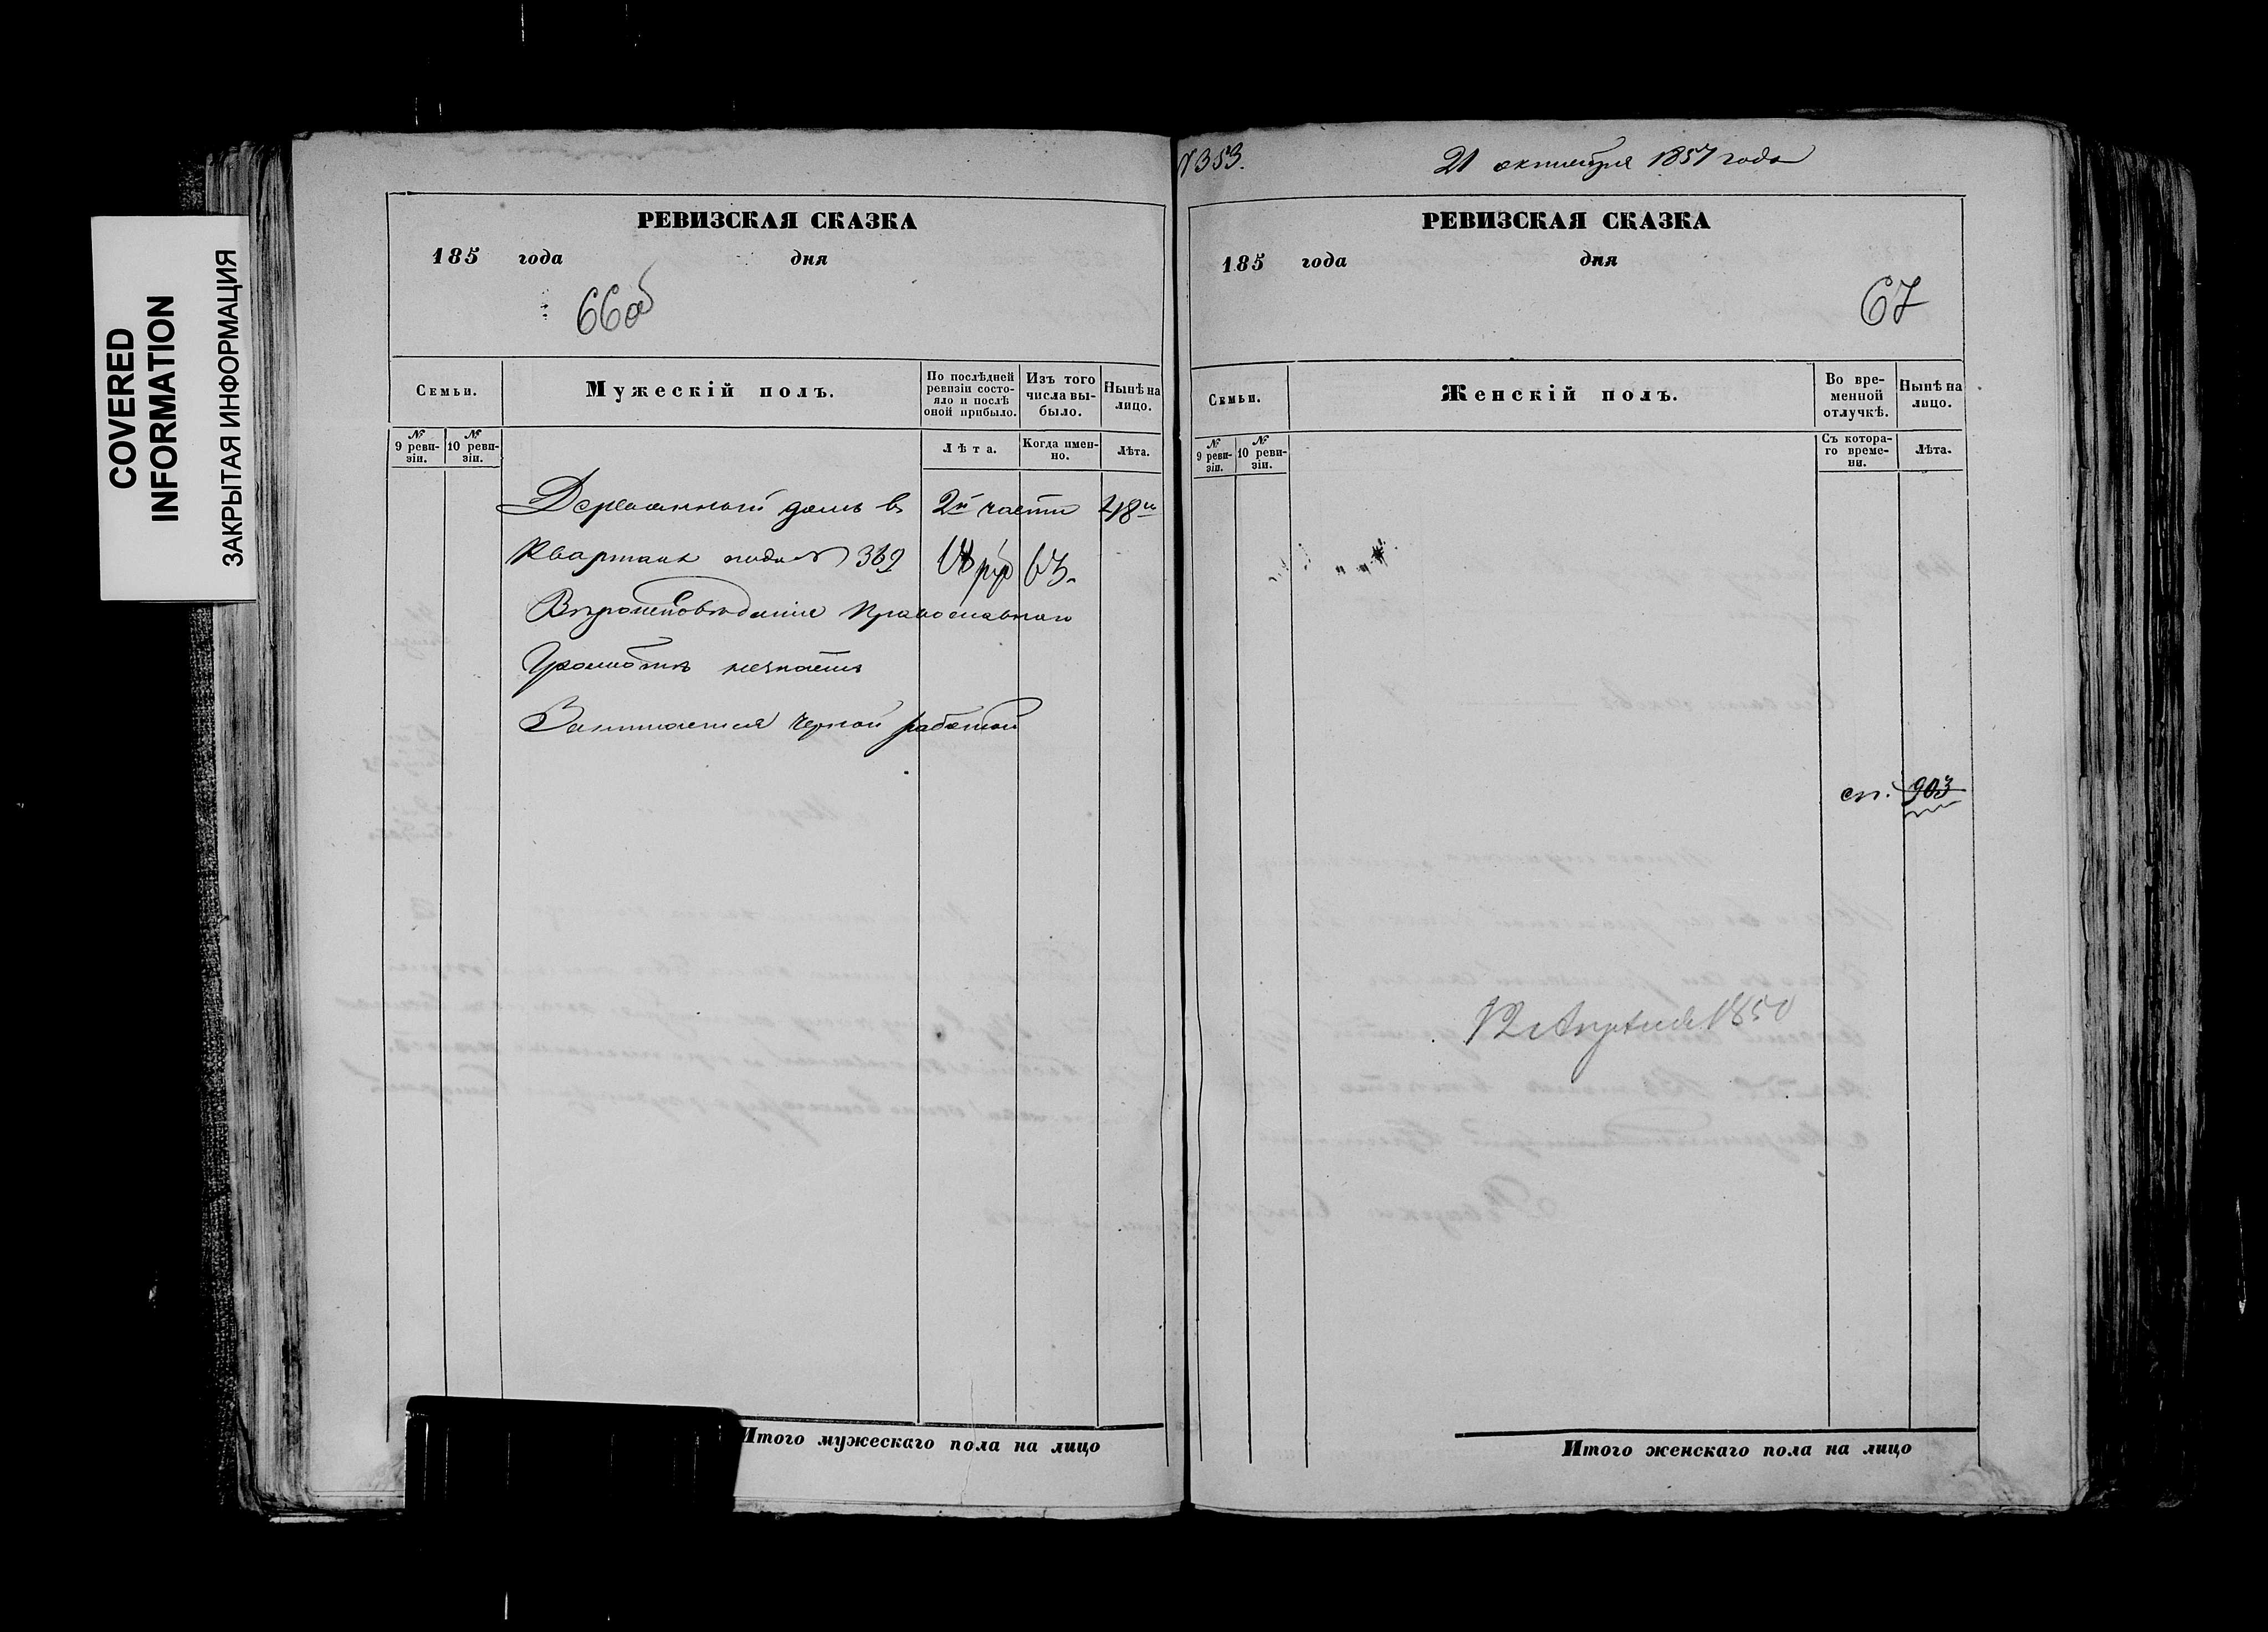 COVERED
INFORMATION
ЗАКРЫТАЯ ИНФОРМАЦИЯ
РЕВИЗСКАЯ СКАЗКА
185 года дня
66об
Семьи.
Мужескій полъ.
По послѣдней ревизіи состояло и послѣ оной прибыло.
Изъ того числа выбыло.
Нынѣ на лицо.
№ 9 ревизіи.
№ 10 ревизіи.
Лѣта.
Когда именно.
Лѣта.
Деревянный домъ в 2й части 4й
Квартала подъ № 369 рub 63
Вѣроисповѣданія Православнаго
Грамотѣ незнаетъ
Занимается черной работой
Итого мужескаго пола на лицо
№353.
21 октября 1857 года
РЕВИЗСКАЯ СКАЗКА
185 года дня
67
Семьи.
Женскій полъ.
Во временной отлучкѣ.
Нынѣ на лицо.
№ 9 ревизіи.
№ 10 ревизіи.
Съ котораго времени.
Лѣта.
ст. 903
12 Апреля 1850
Итого женскаго пола на лицо